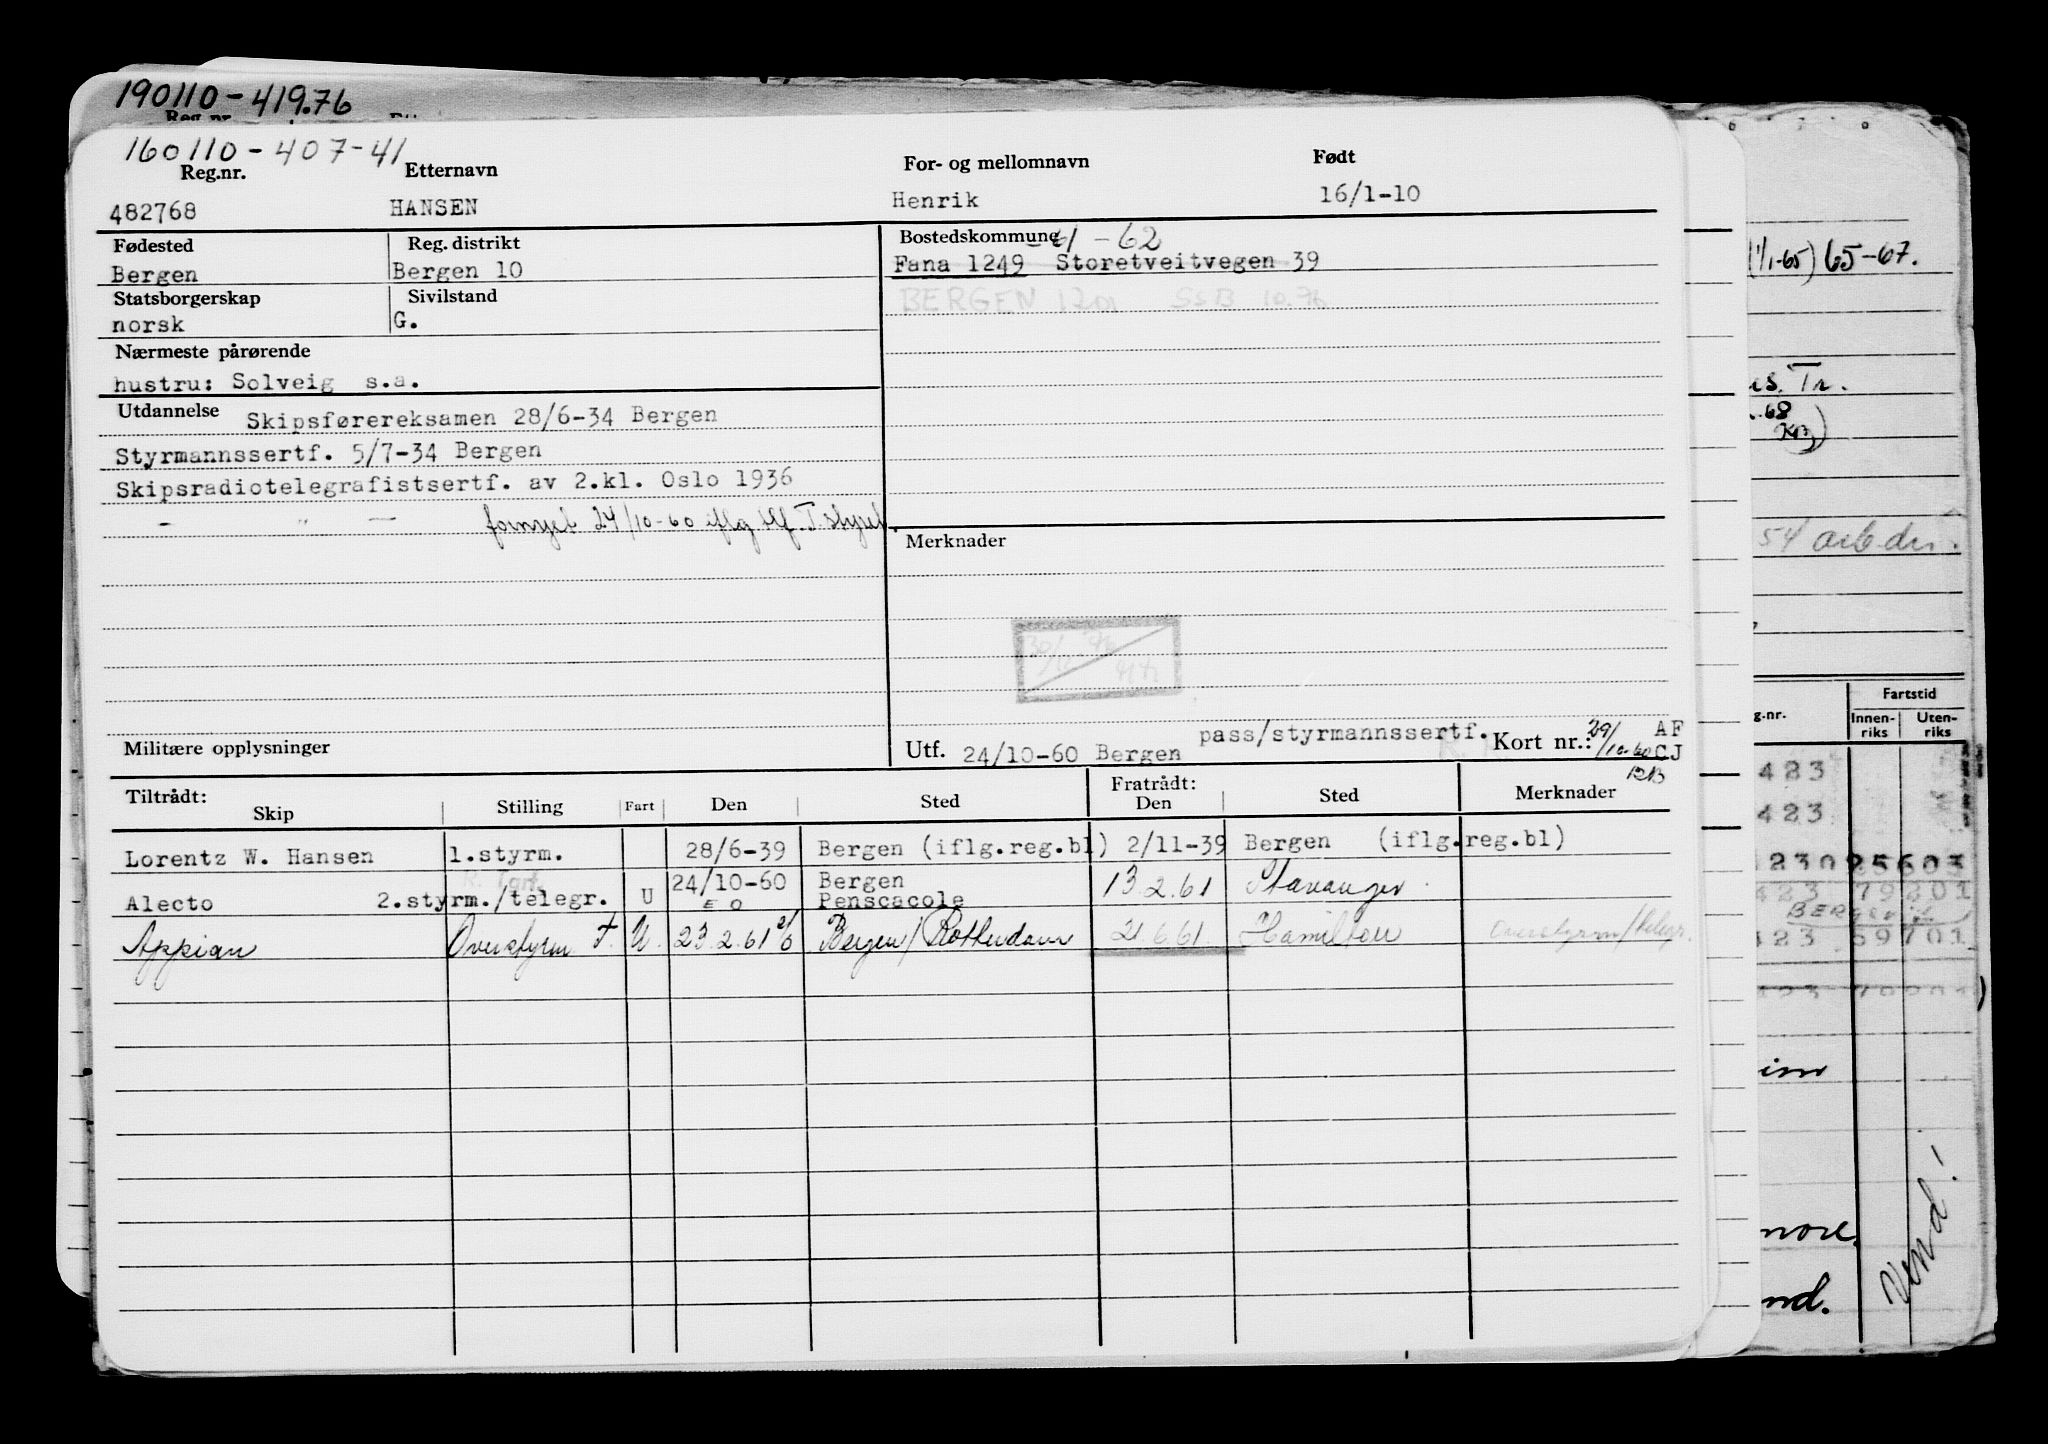 190110-419.76
160110-407-41
Reg.nr. Etternavn For- og mellomnavn Født
482768 HANSEN Henrik 16/1-10
Fødested Reg. distrikt Bostedskommune -61 -62
Bergen Bergen 10 Fana 1249 Storetveitvegen 39
Statsborgerskap Sivilstand BERGEN 1201 SSB 10.76
norsk G.
Nærmeste pårørende
hustru: Solveig s.a.
Utdannelse Skipsførereksamen 28/6-34 Bergen
Styrmannssertf. 5/7-34 Bergen
Skipsradiotelegrafistsertf. av 2.kl. Oslo 1936
- " - fornyet 24/10-60 iflg tlf. T.styret.
Merknader
Militære opplysninger Utf. 24/10-60 Bergen pass/styrmannssertf. Kort nr.: 29/10-60 AF CJ
Tiltrådt: Fratrådt:
Skip Stilling Fart Den Sted Den Sted Merknader
Lorentz W. Hansen 1.styrm. 28/6-39 Bergen (iflg.reg.bl) 2/11-39 Bergen (iflg.reg.bl)
Alecto 2.styrm./telegr. U 24/10-60 Bergen Penscacole 13.2.61 Stavanger
Appian Overstyrm T. U. 23.2.61 Bergen/Rotterdam 21.6.61 Hamilton Overstyrm/telegr.
(1/1-65) 65-67.
Tr.
54 arb.
g.nr. Fartstid
Innen-riks Uten-riks
423
423
423 79201
BERGSVIK
423 69701
Vend!